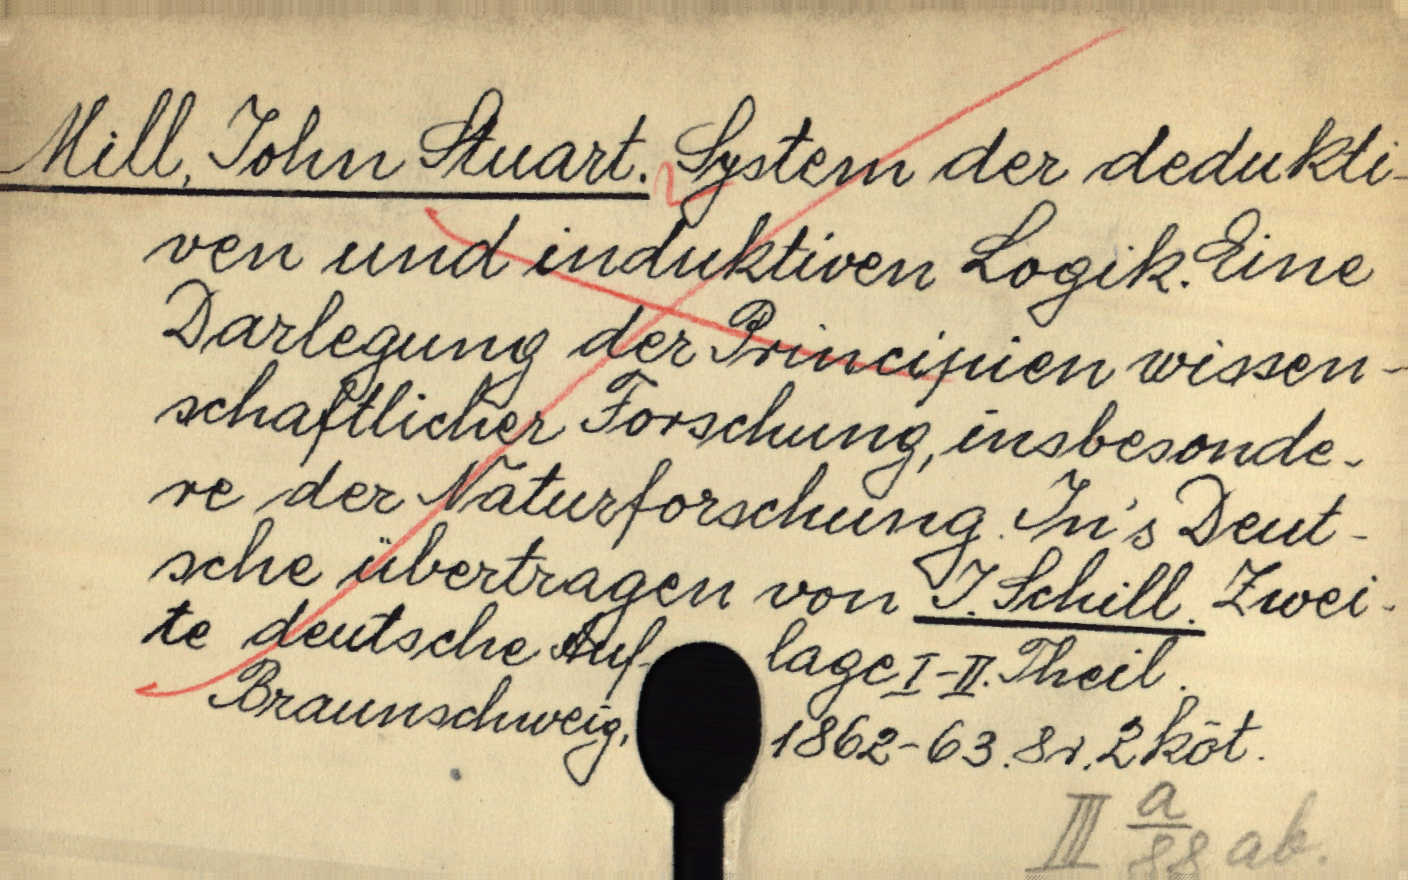 Mill, John Stuart. System der dedukti-
ven und induktiven Logik. Eine
Darlegung der Principien wissen-
schaftlicher Forschung, insbesonde-
re der Naturforschung. In's Deut-
sche übertragen von J. Schill. Zwei-
te deutsche Auf- lage I-II. Theil.
Braunschweig, 1862-63. 8r. 2 köt.
III a/88 ab.